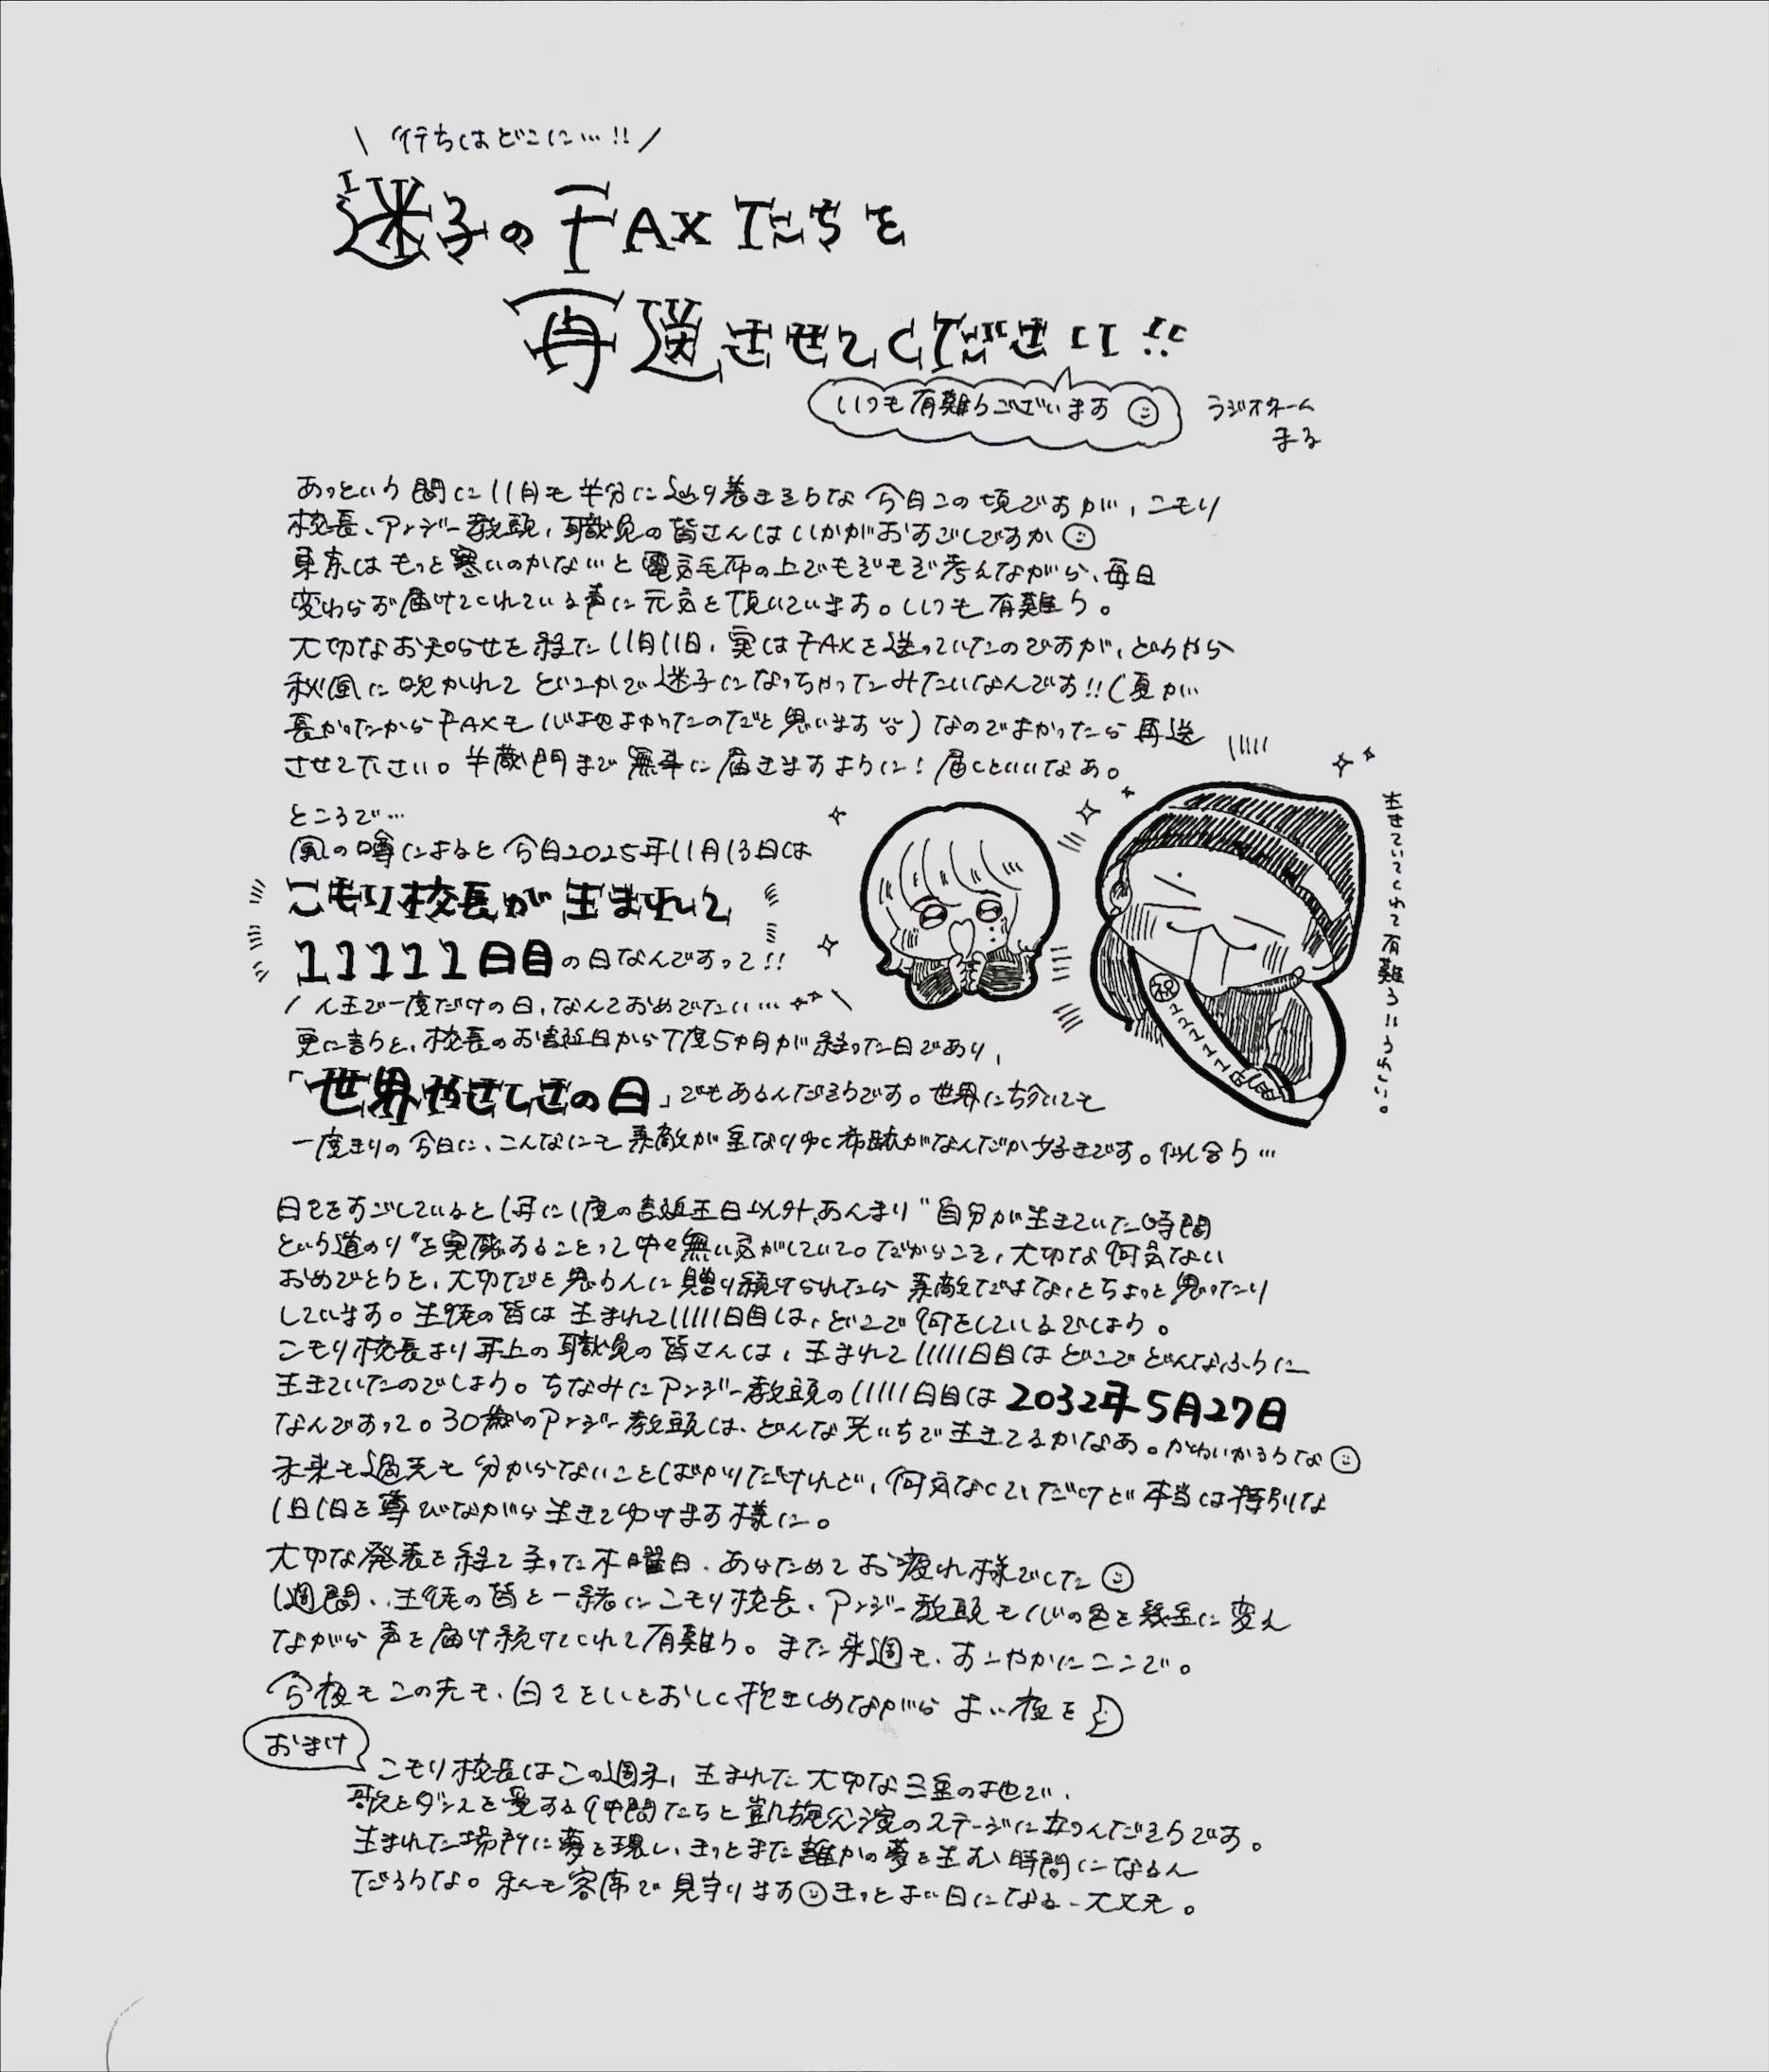 \ 行ちはどこに…!! /
迷子のFAXたちを
再送させてください!!
いつも有難うございます
ラジオネーム
まる
あっという間に11月も半分に辿り着きそうな今日この頃ですが、こもり
校長、アンジー教頭、職員の皆さんはいかがおすごしですか
東京はもっと寒いのかな…と電気毛布の上でもぞもぞ考えながら、毎日
変わらず届けてくれている声に元気を頂いています。いつも有難う。
大切なお知らせを経た11月11日、実はFAXを送っていたのですが、どうやら
秋風に吹かれてどこかで迷子になっちゃったみたいなんです!!(夏が
長かったからFAXも心地よかったのだと思います)なのでよかったら再送
させて下さい。半蔵門まで無事に届きますように!届くといいなあ。
ところで…
風の噂によると今日2025年11月13日は
こもり校長が生まれて
11111日目の日なんですって!!
/ 人生で一度だけの日、なんておめでたい… \
更に言うと、校長のお誕生日から丁度5カ月が経った日であり、
「世界やさしさの日」でもあるんだそうです。世界に於いても
一度きりの今日に、こんなにも素敵が重なりゆく奇跡がなんだか好きです。似合う…
生きていてくれて有難う!!うれしい。
祝 11111日目
日々をすごしていると1年に1度の誕生日以外、あんまり"自分が生きていた時間
という道のり"を実感することって中々無い気がしていて。だからこそ、大切な何気ない
おめでとうを、大切だと思う人に贈り続けられたら素敵だよな、とちょっと思ったり
しています。生徒の皆は生まれて11111日目は、どこで何をしているでしょう。
こもり校長より年上の職員の皆さんは、生まれて11111日目はどこでどんなふうに
生きていたのでしょう。ちなみにアンジー教頭の11111日目は2032年5月27日
なんですって。30歳のアンジー教頭は、どんな気もちで生きてるかなあ。かわいかろうな
未来も過去も分からないことばかりだけれど、何気なくて、だけど本当は特別な
1日1日を尊びながら生きてゆけます様に。
大切な発表を経て至った木曜日、あらためてお疲れ様でした
1週間、生徒の皆と一緒にこもり校長、アンジー教頭も心の色を幾重に変え
ながら声を届け続けてくれて有難う。また来週も、すこやかにここで。
今夜もこの先も、日々をいとおしく抱きしめながらよい夜を
おまけ
こもり校長はこの週末、生まれた大切な三重の地で、
歌とダンスを愛する仲間たちと凱旋公演のステージに立つんだそうです。
生まれた場所に夢を現し、きっとまた誰かの夢を生む時間になるん
だろうな。私も客席で見守りますきっとよい日になる、大丈夫。